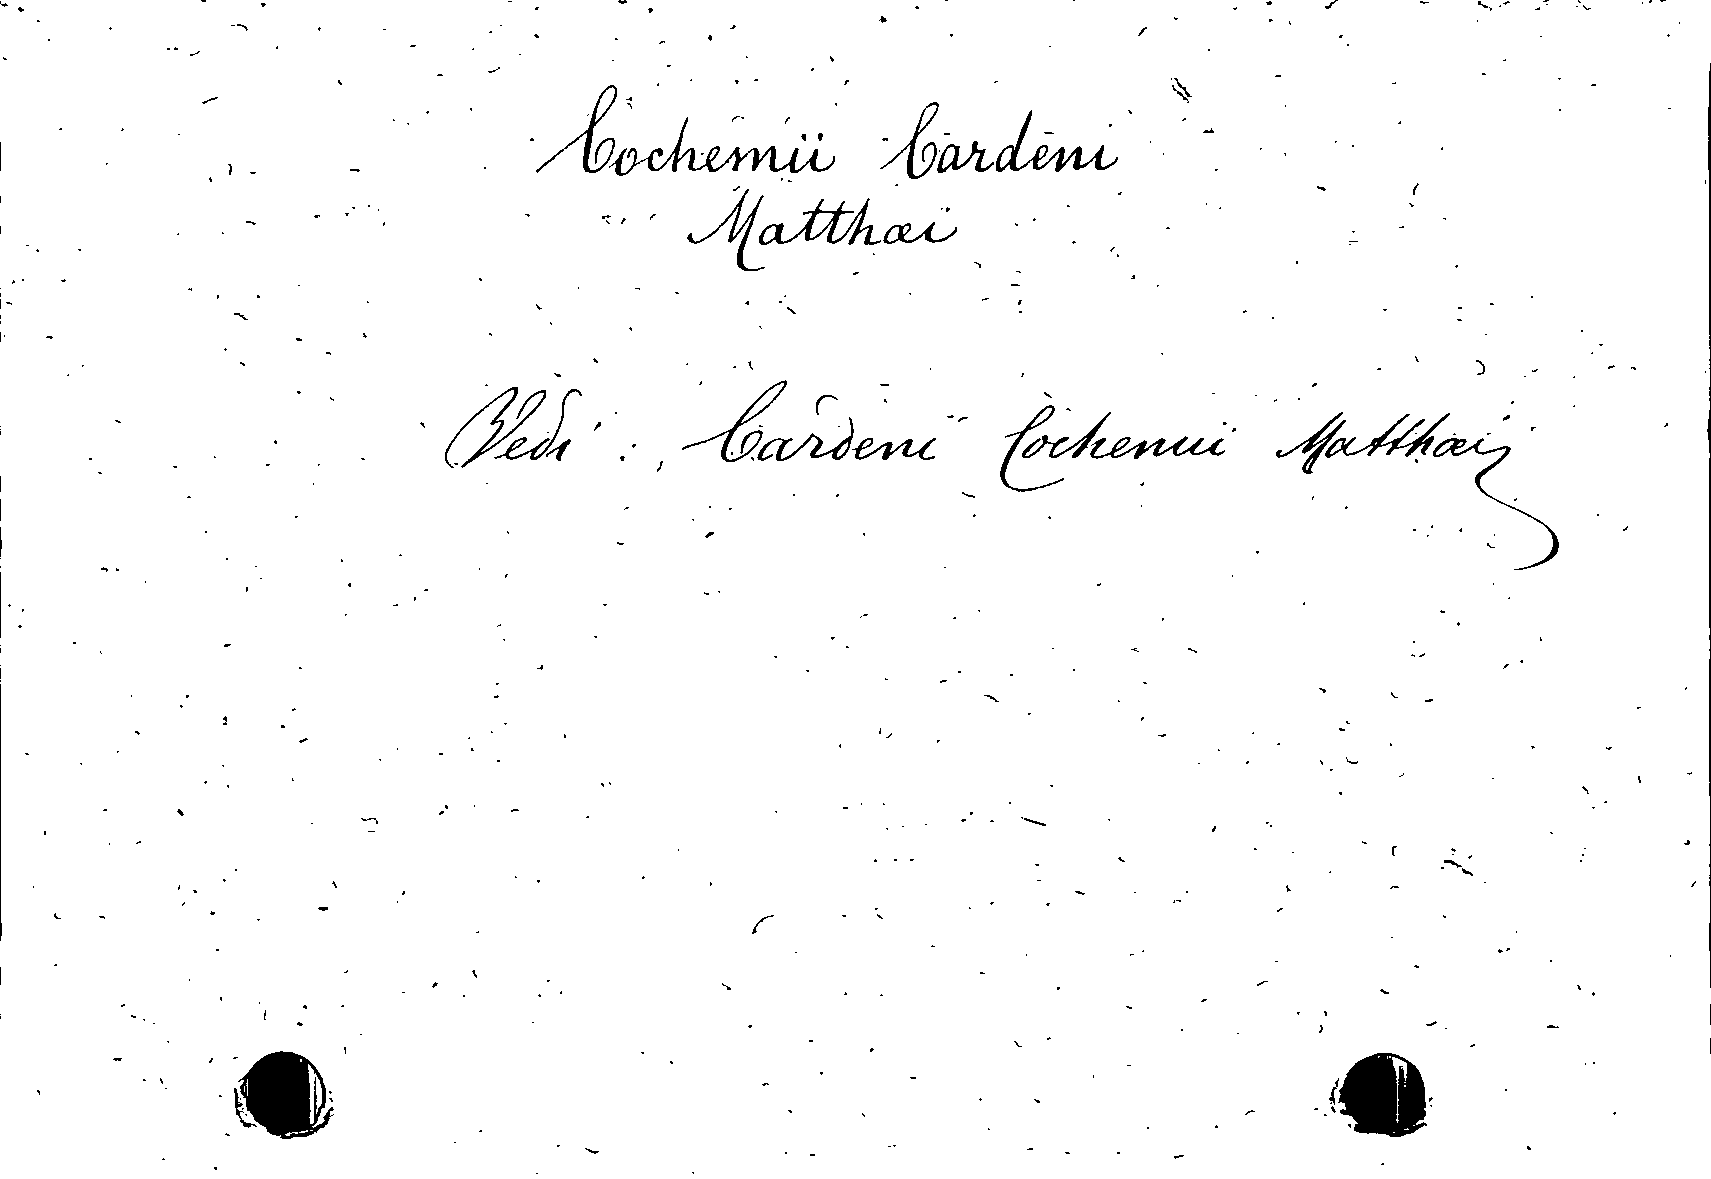 Cochemii Cardeni
Matthæi
Vedi : Cardeni Cochemii Matthæi